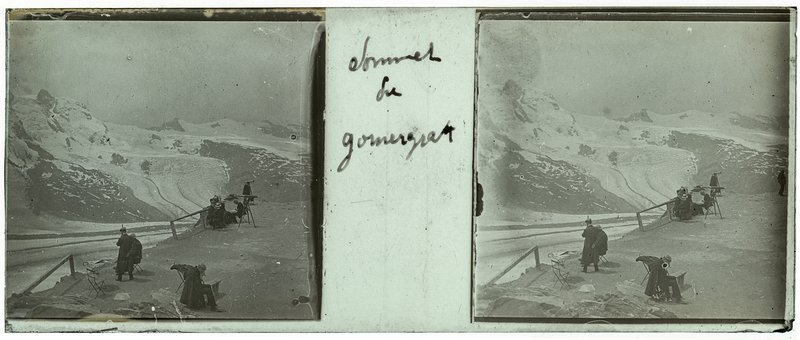 Sommet
du
gornergratt